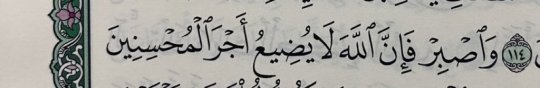 ﴿١١٤﴾ وَٱصۡبِرۡ فَإِنَّ ٱللَّهَ لَا يُضِيعُ أَجۡرَ ٱلۡمُحۡسِنِينَ